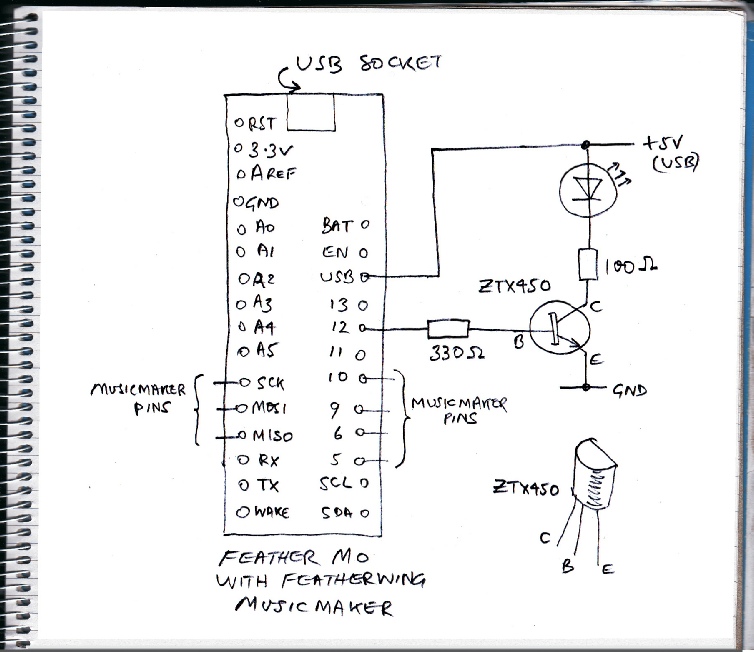 USB SOCKET
RST
3.3V
AREF
GND
A0
A1
A2
A3
A4
A5
SCK
MOSI
MISO
RX
TX
WAKE
BAT
EN
USB
13
12
11
10
9
6
5
SCL
SDA
MUSICMAKER
PINS
MUSICMAKER
PINS
+5V
(USB)
100Ω
ZTX450
C
B
E
330Ω
GND
ZTX450
C
B
E
FEATHER M0
WITH FEATHERWING
MUSICMAKER